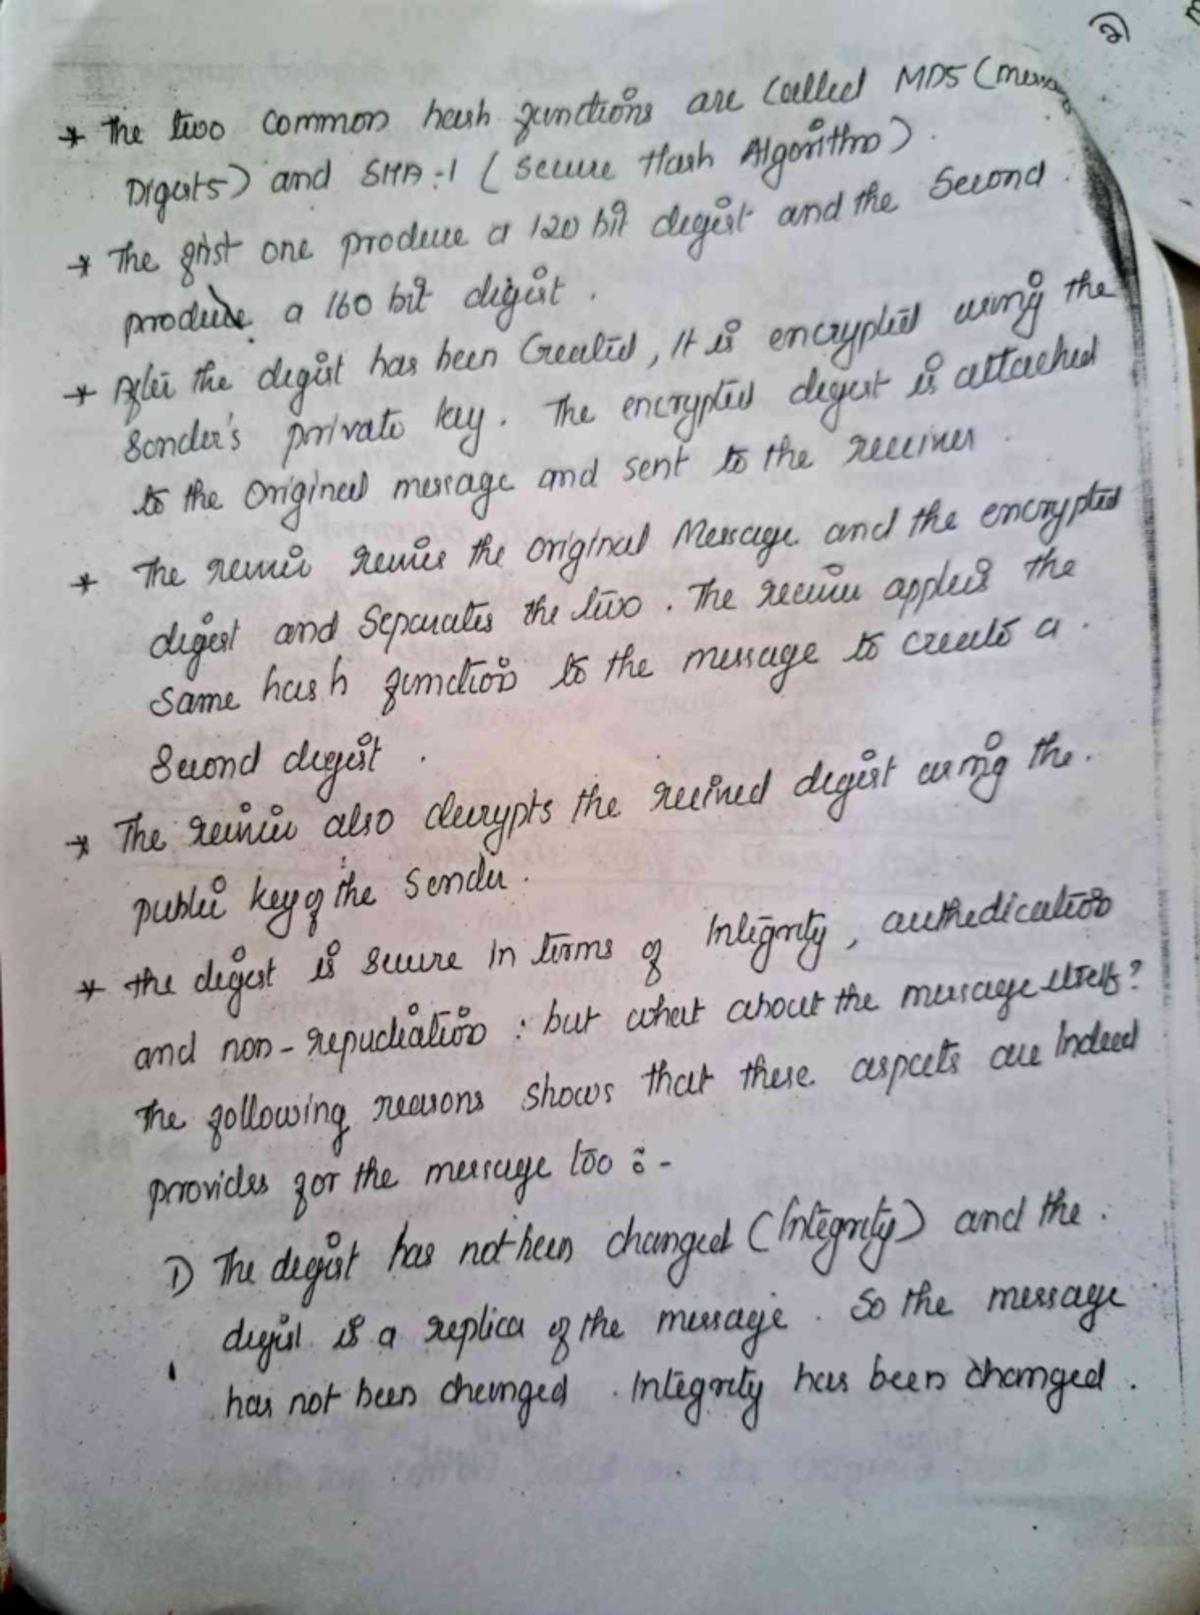 2)
* The two common hash functions are called MD5 (Messag
Digests) and SHA-1 (Secure Hash Algorithm).
* The first one produce a 120 bit digest and the Second
produce a 160 bit digest.
* After the digest has been Created, It is encrypted using the
Sender's private key. The encrypted digest is attached
to the Original message and sent to the receiver
* The receiver receives the original Message and the encrypted
digest and Separates the two. The receiver applies the
Same hash function to the message to create a
Second digest.
* The receiver also decrypts the received digest using the
public key of the Sender.
* the digest is secure in terms of Integrity, authedication
and non-repudiation : but what about the message itself?
The following reasons shows that these aspects are Indeed
provides for the message too :-
1) The digest has not been changed (Integrity) and the
digest is a replica of the message. So the message
has not been changed. Integrity has been changed.